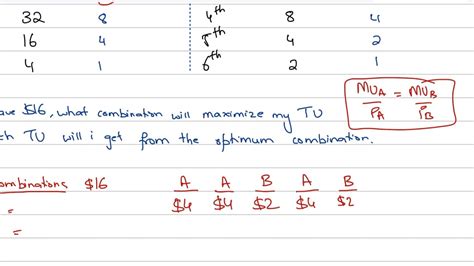 32 8 4th 8 4
16 4 5th 4 2
4 1 6th 2 1
MUA/PA = MUB/PB
ave $16, what combination will maximize my TU
ch TU will i get from the optimum combination.
ombinations $16 A/$4 A/$4 B/$2 A/$4 B/$2
=
=